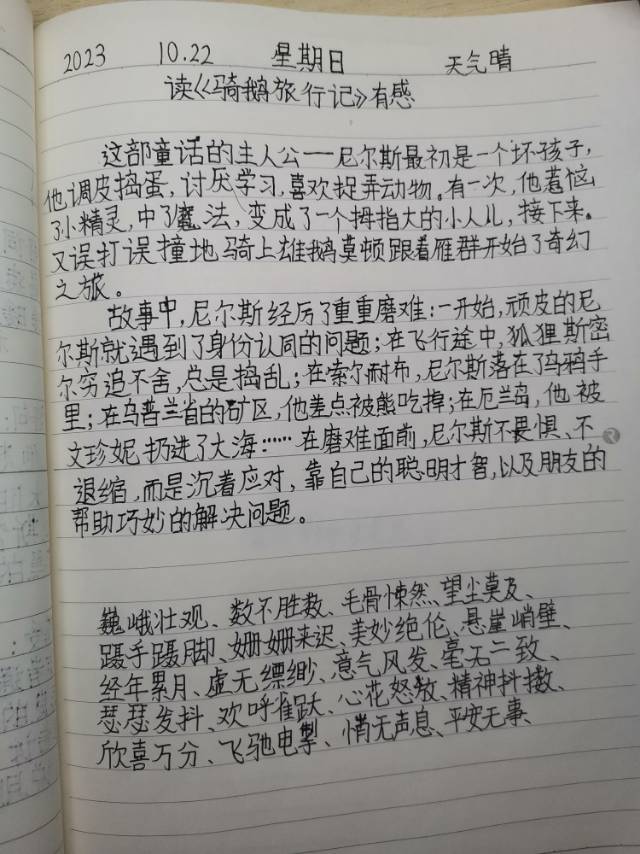 2023 10.22 星期日 天气晴
读《骑鹅旅行记》有感
这部童话的主人公——尼尔斯最初是一个坏孩子,
他调皮捣蛋,讨厌学习,喜欢捉弄动物。有一次,他惹恼
了小精灵,中了魔法,变成了一个拇指大的小人儿,接下来。
又误打误撞地骑上雄鹅莫顿跟着雁群开始了奇幻
之旅。
故事中,尼尔斯经历了重重磨难:一开始,顽皮的尼
尔斯就遇到了身份认同的问题;在飞行途中,狐狸斯密
尔穷追不舍,总是捣乱;在索尔耐布,尼尔斯落在了乌鸦手
里;在乌普兰省的矿区,他差点被熊吃掉;在厄兰岛,他被
文珍妮扔进了大海……在磨难面前,尼尔斯不畏惧、不
退缩,而是沉着应对,靠自己的聪明才智,以及朋友的
帮助巧妙的解决问题。
巍峨壮观、数不胜数、毛骨悚然、望尘莫及、
蹑手蹑脚、姗姗来迟、美妙绝伦、悬崖峭壁、
经年累月、虚无缥缈、意气风发、毫无二致、
瑟瑟发抖、欢呼雀跃、心花怒放、精神抖擞、
欣喜万分、飞驰电掣、悄无声息、平安无事